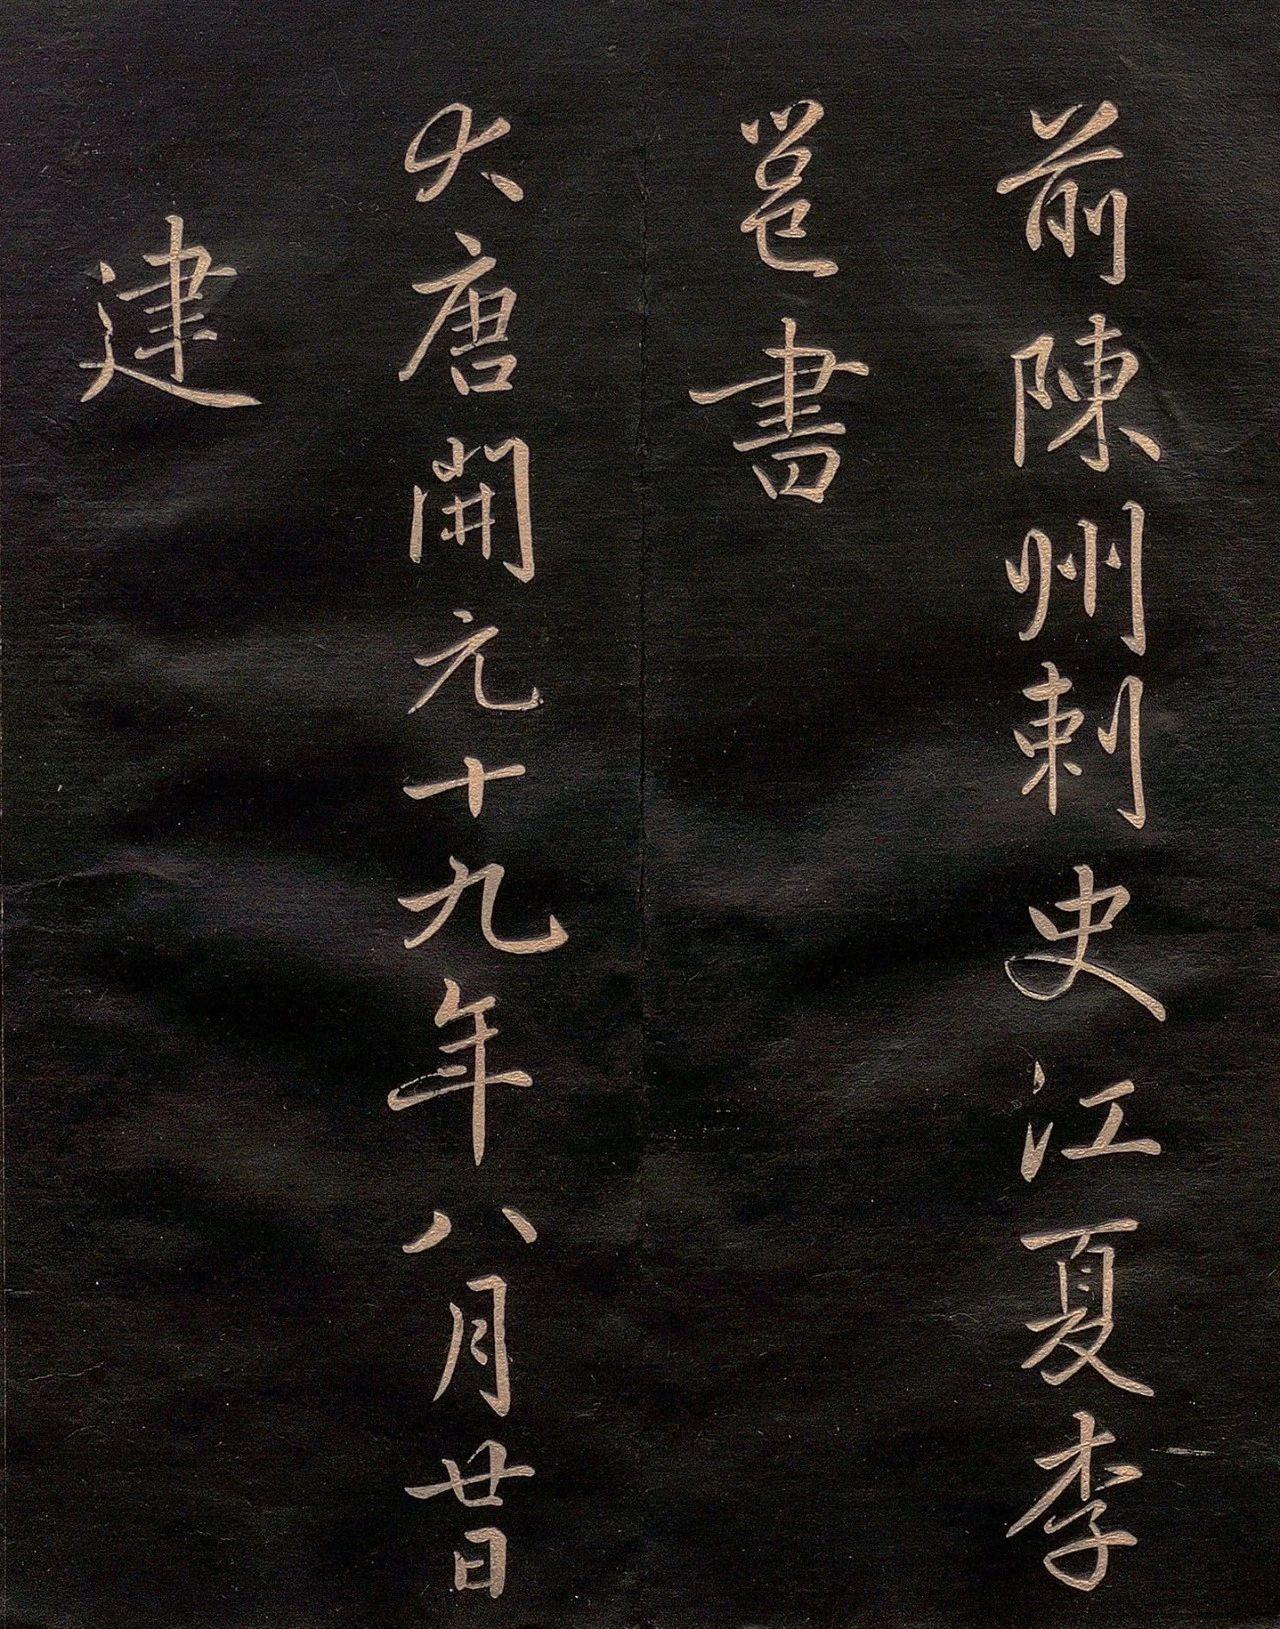 前陳州刺史江夏李
邕書
大唐開元十九年八月廿日
建